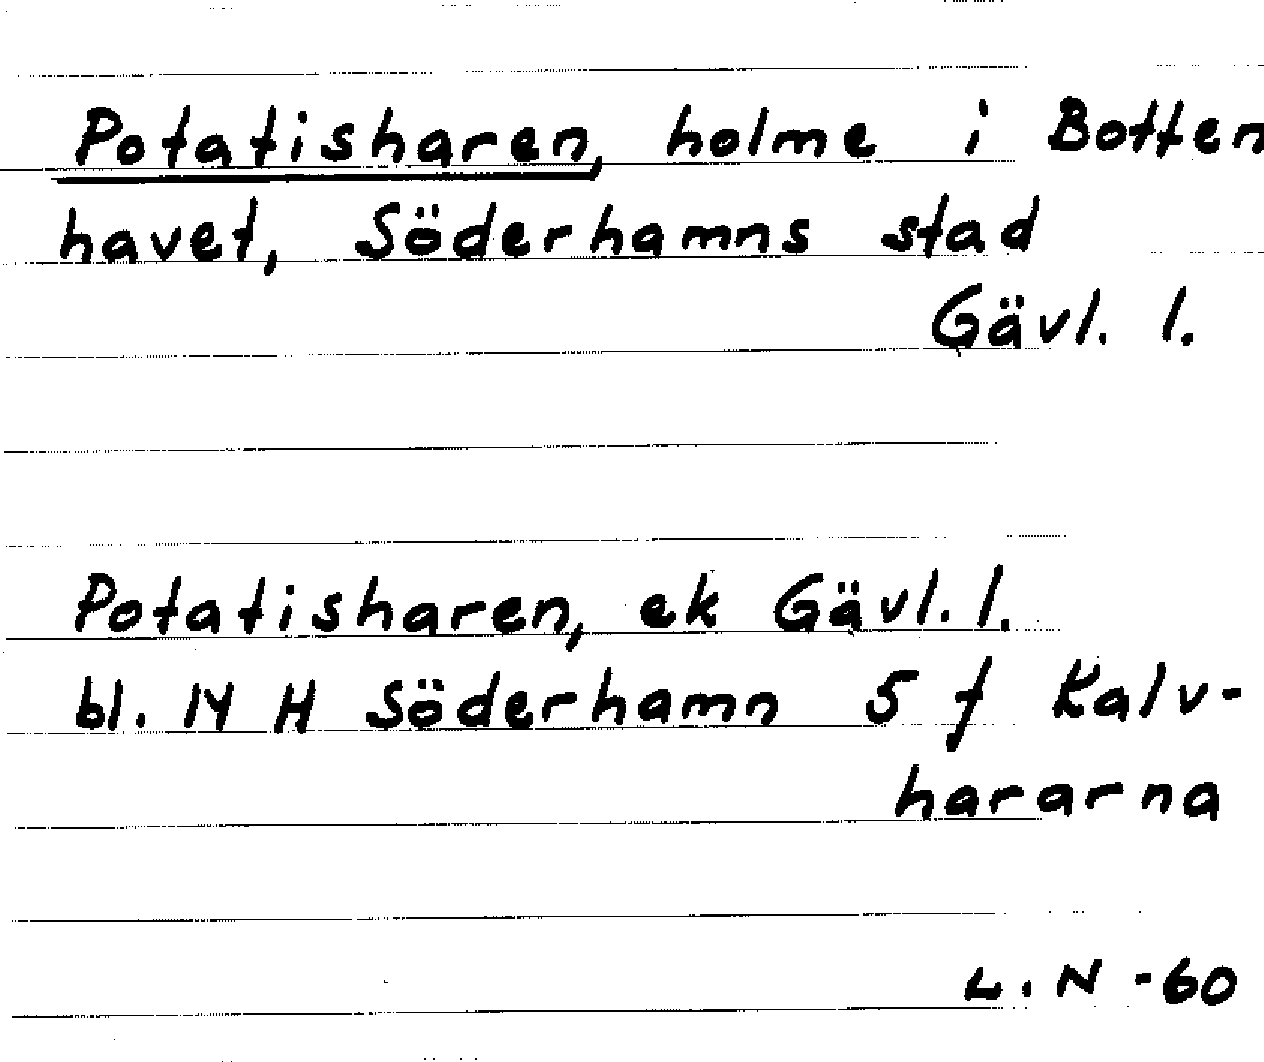 Potatisharen, holme i Botten
havet, Söderhamns stad
Gävl. l.
Potatisharen, ek Gävl. l.
bl. 14 H Söderhamn 5 f Kalv-
hararna
L. N -60